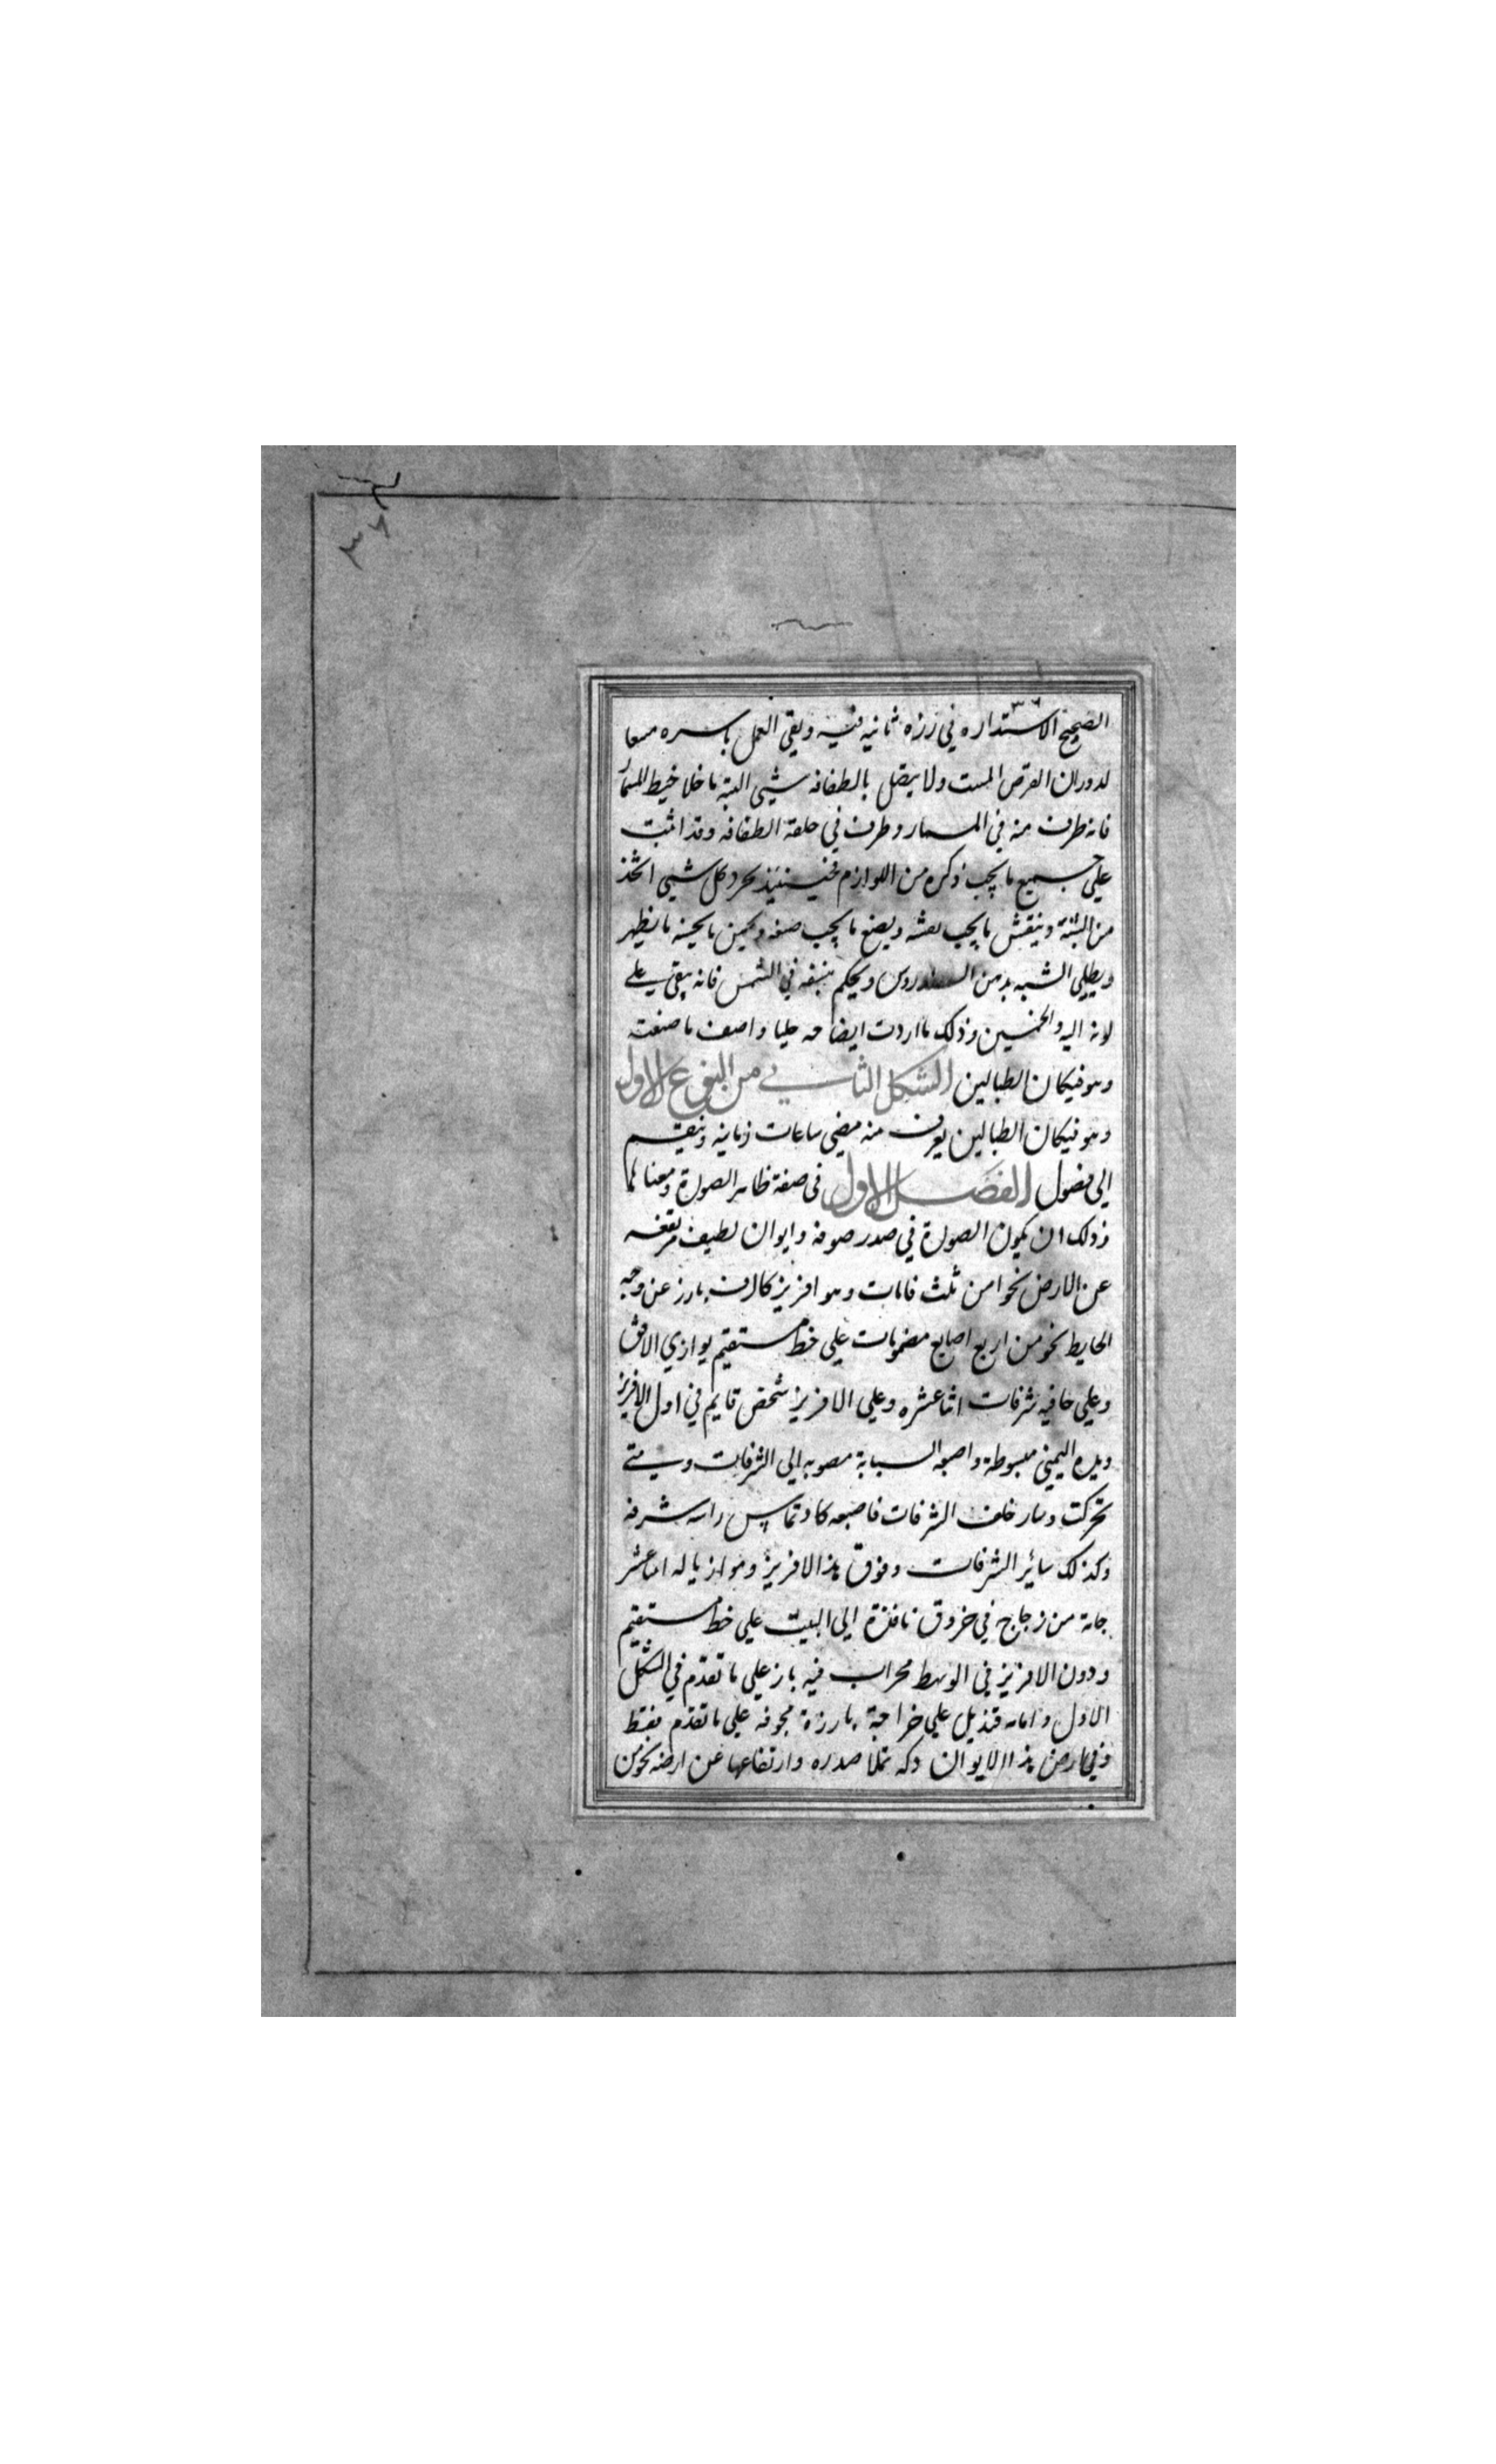 ٣٦
الصحيح الاستداره في رزه ثانيه فيه وبقي العمل باسره معا
لدوران القرص المست ولا يتصل بالطفافه شيى البته ما خلا خيط المسمار
فانه طرف منه في المسمار وطرف في حلقة الطفافه وقد اثبت
علي جميع ما يجب ذكره من اللوازم فحينئذ يحرد كل شيى اتخذ
من الشبه وينقش ما يجب نقشه ويصنع ما يجب صنعه ويحسن ما يحسنه ما يظهر
ويطلي الشبه بدهن السندروس ويحكم بنشفه في الشمس فانه يبقي علي
لونه اليه والخمسين وذلك ما اردت ايضاحه جليا واصف ما صنعته
وهو فنكان الطبالين الشكل الثاني من النوع الاول
وهو فنكان الطبالين يعرف منه مضي ساعات زمانيه وينقسم
الي فصول الفصل الاول في صفة ظاهر الصورة ومعناها
وذلك ان يكون الصورة في صدر صوفه وايوان لطيف مرتفعه
عن الارض نحوا من ثلث قامات وهو افريز كالرف بارز عن وجه
الحايط نحو من اربع اصابع مضمومات علي خط مستقيم يوازي الافق
وعلي حافيه شرفات اثنا عشره وعلي الافريز شخص قايم في اول الافريز
ويده اليمني مبسوطة واصبعه السبابة مصوبه الي الشرفات ومتي
تحركت وسار خلف الشرفات فاصبعه كاد تماس راس شرفه
وكذلك سائر الشرفات وفوق هذا الافريز وموازيا له اثنا عشر
جامة من زجاج في خروق نافذة الي البيت علي خط مستقيم
ودون الافريز في الوسط محراب فيه باز علي ما تقدم في الشكل
الاول وامامه قنديل علي خراجة بارزة مجوفه علي ما تقدم فقط
وفي ارض هذا الايوان دكه تملا صدره وارتفاعها عن ارضه نحو من